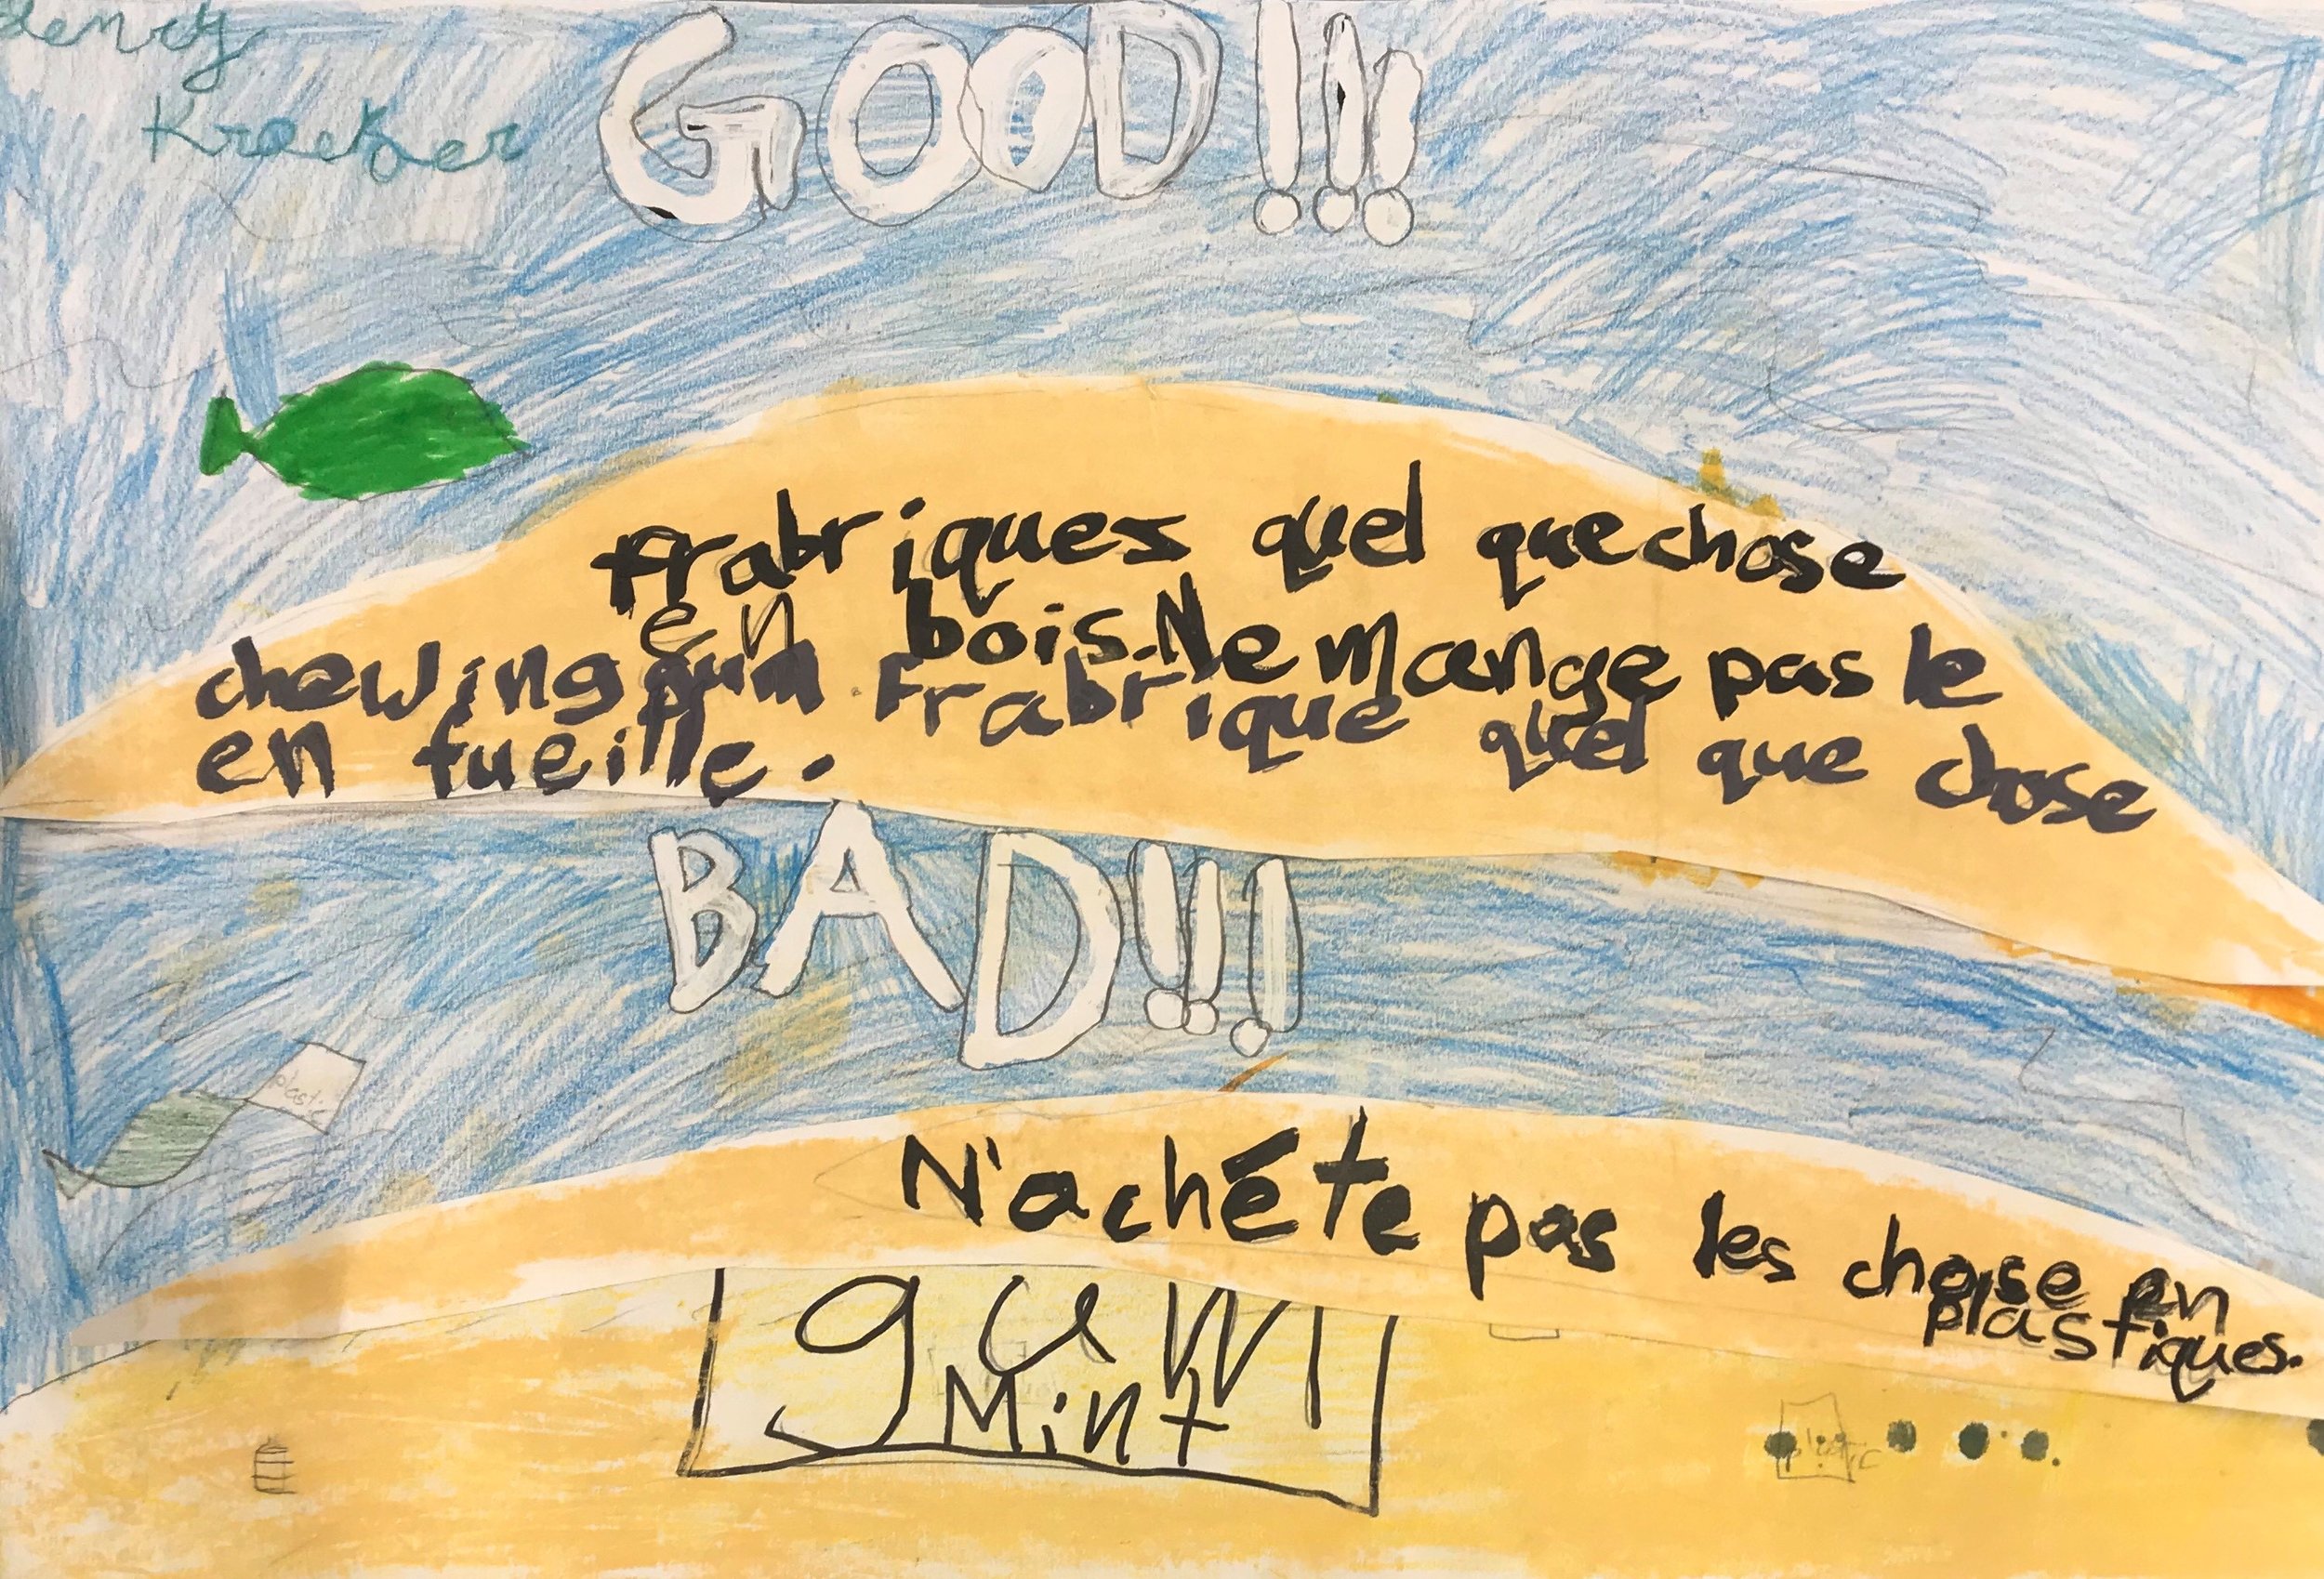 Kraetzer
GOOD!!!
Frabriques quel quechose
en bois. Ne mange pas le
chewing gum. Frabrique quel que chose
en fueille.
BAD!!!
plastic
N'achéte pas les choise en
plastiques.
gum
Mint
plastic